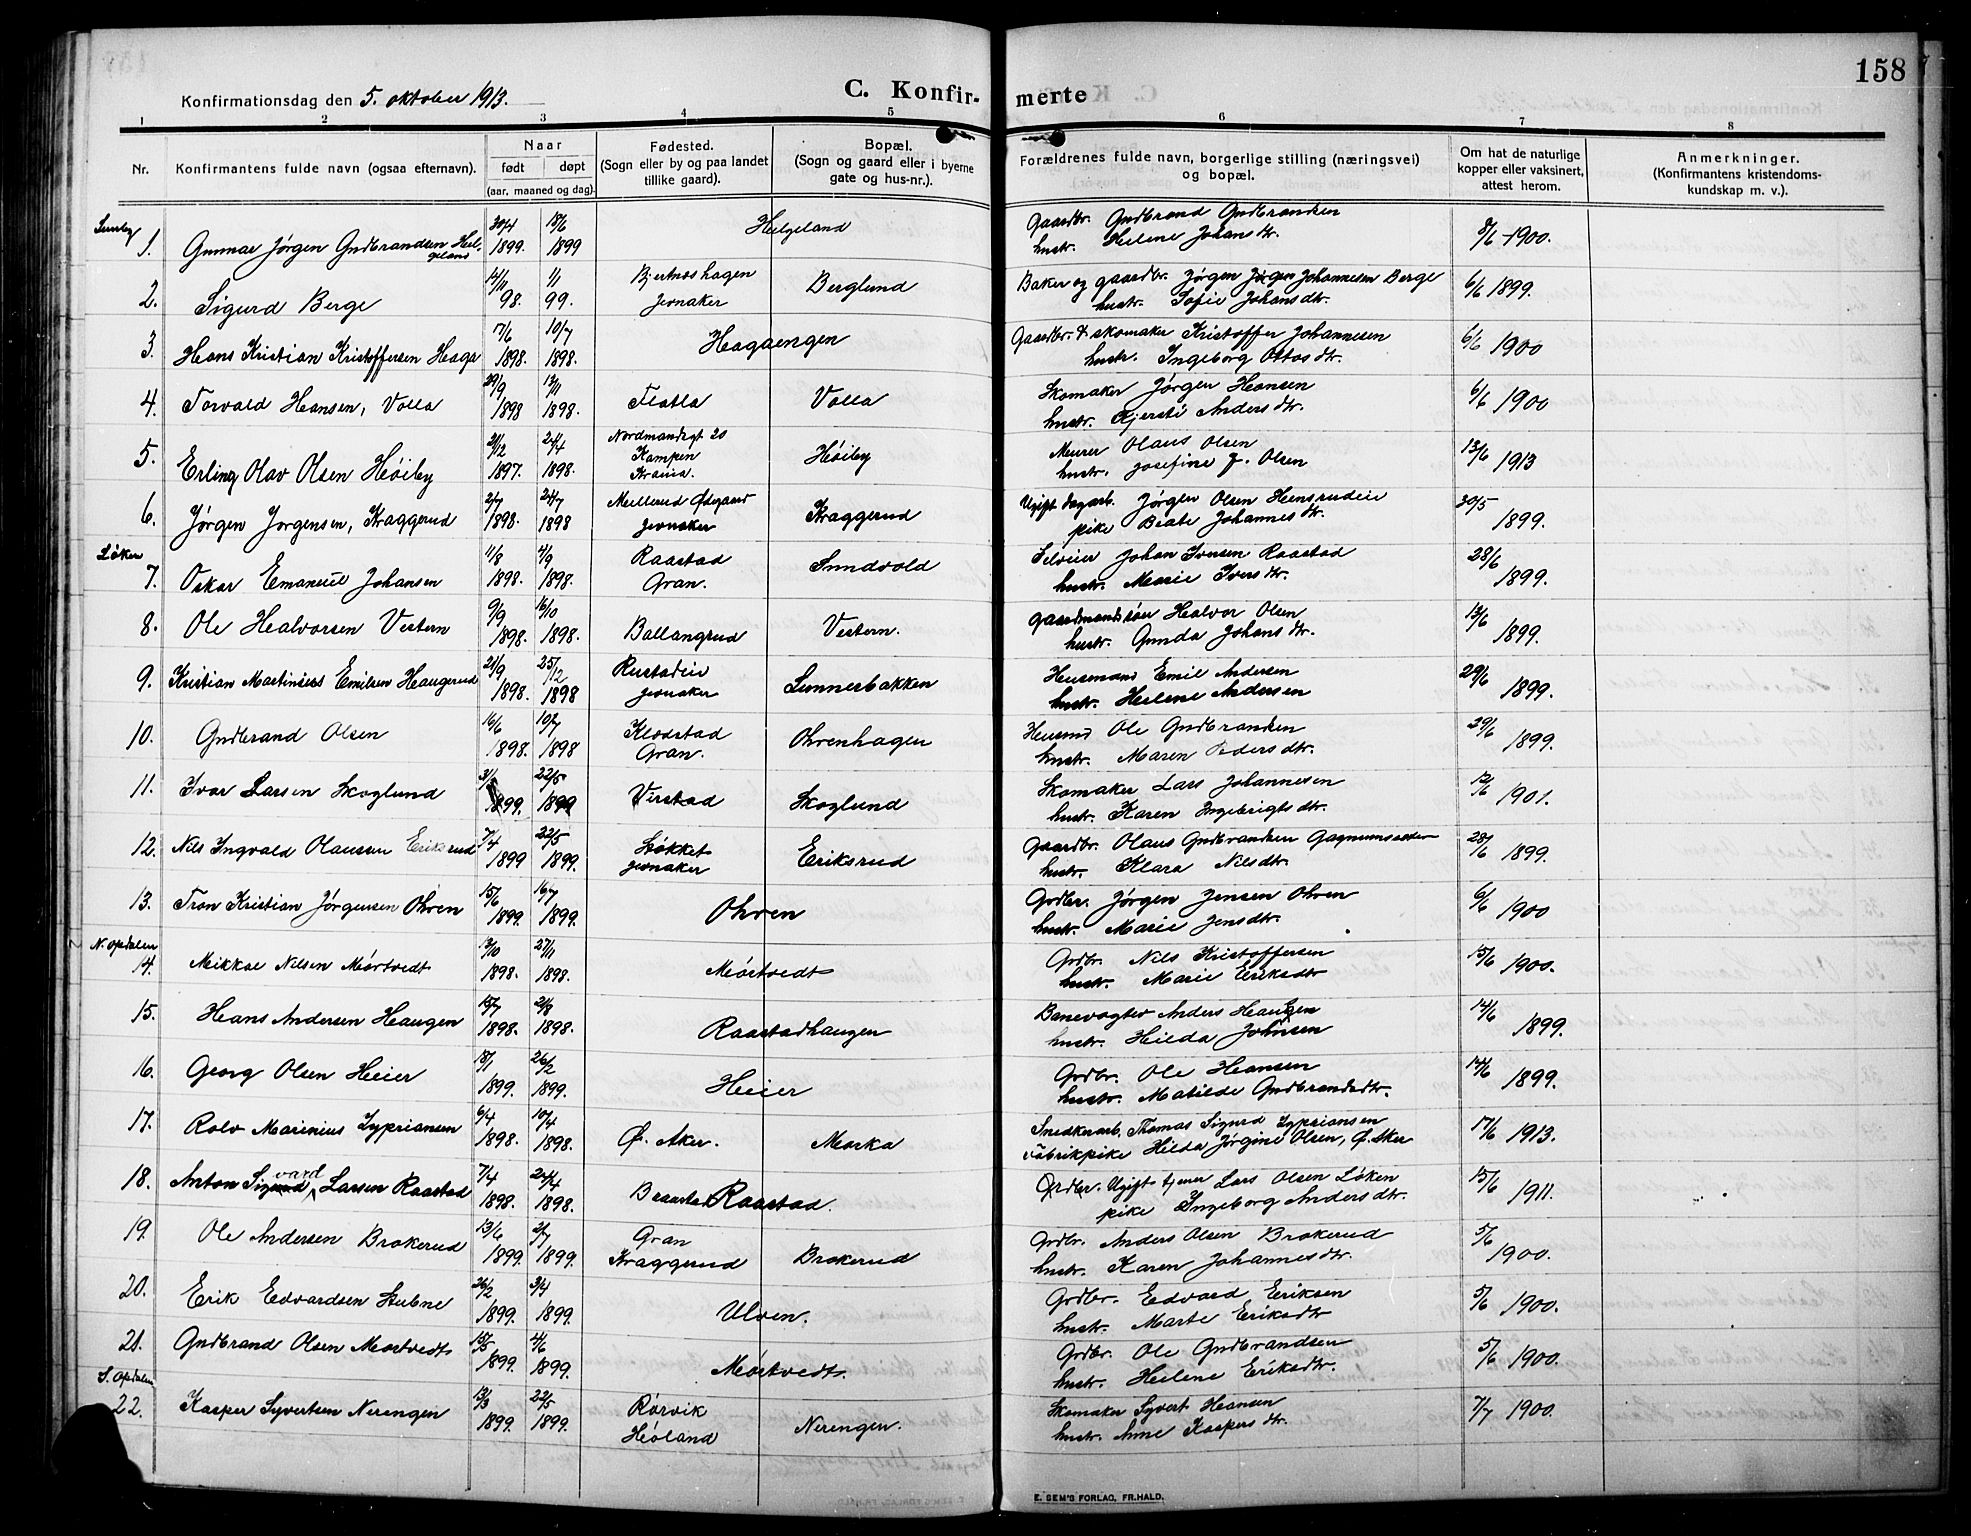 158
Konfirmationsdag den 5. oktober 1913.
C. Konfirmerte
1 2 3 4 5 6 7 8
Nr. Konfirmantens fulde navn (ogsaa efternavn). Naar født døpt (aar, maaned og dag). Fødested. (Sogn eller by og paa landet tillike gaard). Bopæl. (Sogn og gaard eller i byerne gate og hus-nr.). Forældrenes fulde navn, borgerlige stilling (næringsvei) og bopæl. Om hat de naturlige kopper eller vaksinert, attest herom. Anmerkninger. (Konfirmantens kristendomskundskap m. v.).
1. Gunnar Jørgen Gudbrandsen Helgeland 30/4 1899. 18/6 1899 Helgeland Gaardbr. Gudbrand Gudbrandsen hustr. Helene Johansdtr. 9/6 1900.
2. Sigurd Berge 14/11 98. 1/1 99. Bjertneshagen Jevnaker Berglund Baker og gaardbr. Jørgen Johannesen Berge hustr. Sofie Johansdtr. 6/6 1899.
3. Hans Kristian Kristoffersen Haga 17/6 1898. 10/7 1898. Hagaengen Gaardbr. & skomaker Kristoffer Johannesen hustr. Ingeborg Ottosdtr. 6/6 1900
4. Torvald Hansen, Volla 29/9 1898 13/11 1898. Flatla Volla Skomaker Jørgen Hansen hustr. Kjersti Andersdtr. 6/6 1900
5. Erling Olav Olsen Høiby 31/12 1897. 24/4 1898. Nordmandsgt 20 Kampen Krania. Høiby Murer Olaus Olsen hustr. Josefine J. Olsen 13/6 1913
6. Jørgen Jørgensen, Kraggerud 2/7 1898. 24/7 1898 Mellerud Ødegaard Jevnaker Kraggerud Ugift dagarb. Jørgen Olsen Hensrudeie pike Beate Johannesdtr. 30/5 1899.
Løken
7. Oskar Emanuel Johansen 11/8 1898. 4/9 1898. Raastad Gran. Sundvold Selveier Johan Iversen Raastad hustr. Marie Iversdtr. 28/6 1899.
8. Ole Halvorsen Vestern 9/9 1898. 16/10 1898. Ballangrud Vestern. gaardmandssøn Halvor Olsen hustr. Gunda Johansdtr. 13/6 1899.
9. Kristian Martinius Emilsen Haugerud 21/9 1898. 25/12 1898 Rustadeie Jevnaker Lunnerbakken Husmand Emil Andersen hustr. Helene Andersen 29/6 1899.
10. Gudbrand Olsen 16/6 1898. 10/7 1898 Klodstad Gran. Ohrenhagen Husmd Ole Gudbrandsen hustr. Maren Pedersdtr. 29/6 1899.
11. Ivar Larsen Skoglund 1899. 22/5 1899 Virstad Skoglund Skomaker Lars Johannesen hustr. Karen Ingebrigtsdtr. 12/6 1901.
12. Nils Ingvald Olaussen Eriksrud 7/4 1899 22/5 1899. Løkket Jevnaker Eriksrud Gaardbr. Olaus Gudbrandsen hustr. Klara Nilsdtr. 28/6 1899.
13. Tron Kristian Jørgensen Ohren 15/6 1899. 16/7 1899. Ohren Grdbr. Jørgen Jensen Ohren hustr. Marie Jensdtr. 6/6 1900
N. Opdalen
14. Mikkal Nilsen Mørtvedt 13/10 1898. 27/11 1898. Mørtvedt Grdbr. Nils Kristoffersen hustr. Marie Eriksdtr 15/6 1900.
15. Hans Andersen Haugen 15/7 1898. 21/8 1898. Raastadhaugen Banevogter Anders Haugen hustr. Hilda Johnsen 14/6 1899.
16. Georg Olsen Heier 18/1 1899. 26/2 1899. Heier Grdbr. Ole Hansen hustr. Matilde Gudbrandsdtr. 14/6 1899.
17. Rolv Marinius Sypriansen 6/4 1898. 10/4 1898. Ø. Aker. Morka Snedkerarb. Thomas Sigurd Sypriansen Fabrikpike Hilda Jørgine Olsen, Ø. Aker 17/6 1913.
18. Anton Sigvard Larsen Raastad 7/4 1898. 24/4 1898. Raastad. Grdbr. Ugift tjener Lars Olsen Løken pike Ingeborg Andersdtr. 15/6 1911.
19. Ole Andersen Brokerud 13/6 1899. 2/7 1899. Gran Kraggerud Brokerud Grdbr. Anders Olsen Brokerud hustr. Karen Johannesdtr. 5/6 1900.
20. Erik Edvardsen Stubne 26/2 1899. 3/4 1899. Ulven. Grdbr. Edvard Eriksen hustr. Marte Eriksdtr 5/6 1900.
21. Gudbrand Olsen Mørtvedt 15/5 1899. 4/6 1899. Mørtvedt. Grdbr. Ole Gudbrandsen hustr. Helene Eriksdtr. 5/6 1900.
S. Opdalen
22. Kasper Syvertsen Nerengen 13/3 1899. 22/5 1899. Rørvik Høland Nerengen. Skomaker Syvert Hansen hustr. Anne Kaspersdtr. 7/7 1900.
E. SEM'S FORLAG, FR.HALD.